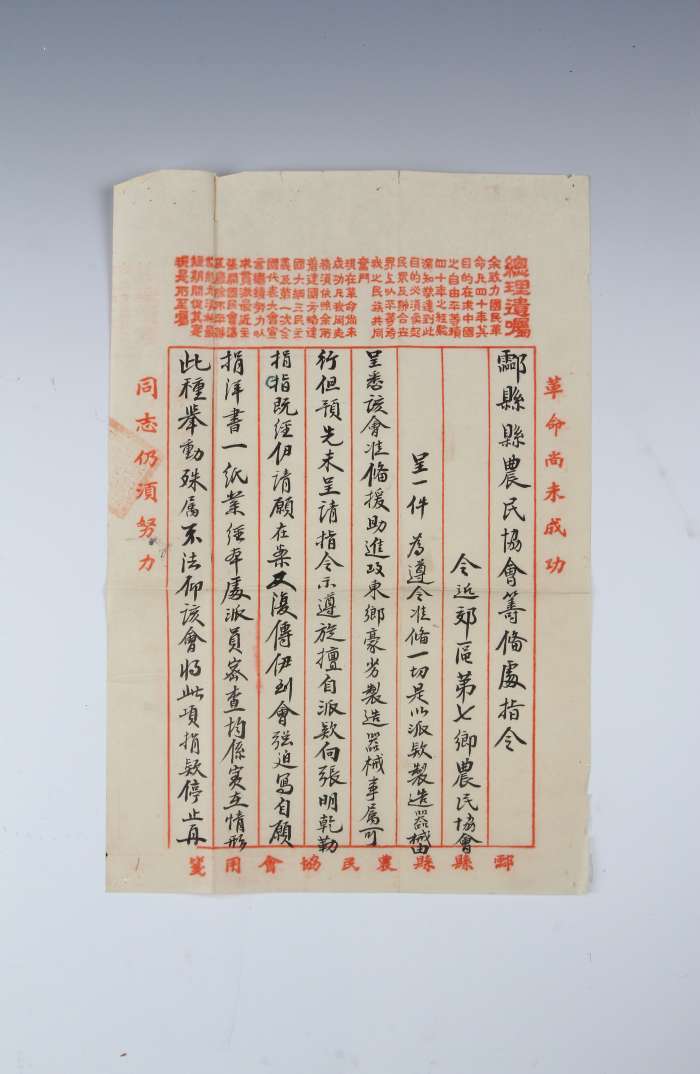 革命尚未成功
總理遺囑
余致力國民革
命凡四十年其
目的在求中國
之自由平等積
四十年之經驗
深知欲達到此
目的必須喚起
民眾及聯合世
界上以平等待
我之民族共同
奮鬥
現在革命尚未
成功凡我同志
務須依照余所
著建國方略建
國大綱三民主
義及第一次全
國代表大會宣
言繼續努力以
求貫澈最近主
張開國民會議
及廢除不平等
條約尤須於最
短期間促其實
現是所至囑
酃縣縣農民協會籌俻處指令
令近郊區第七鄉農民協會
呈一件 為遵令准俻一切是以派欵製造器械由
呈悉該會准俻援助進攻東鄉豪劣製造器械事属可
行但預先未呈請指令示遵旋擅自派欵向張明乾勒
捐指既經伊請願在案又復傳伊到會强迫寫自願
捐洋書一紙業經本處派員密查均係實在情形
此種舉動殊属不法仰該會將此項捐欵停止再
同志仍須努力
酃縣縣農民協會用箋